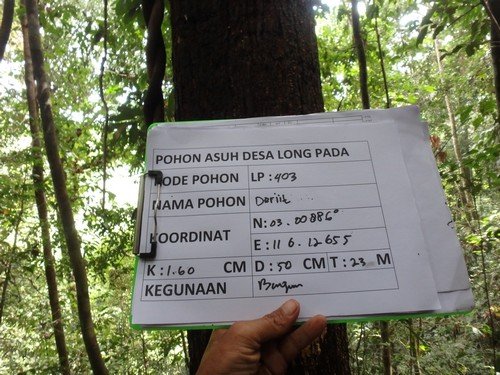 POHON ASUH DESA LONG PADA
KODE POHON LP : 403
NAMA POHON
KOORDINAT N: 03. 00886°
E: 116. 12655
K : 1.60 CM D : 50 CM T : 23 M
KEGUNAAN